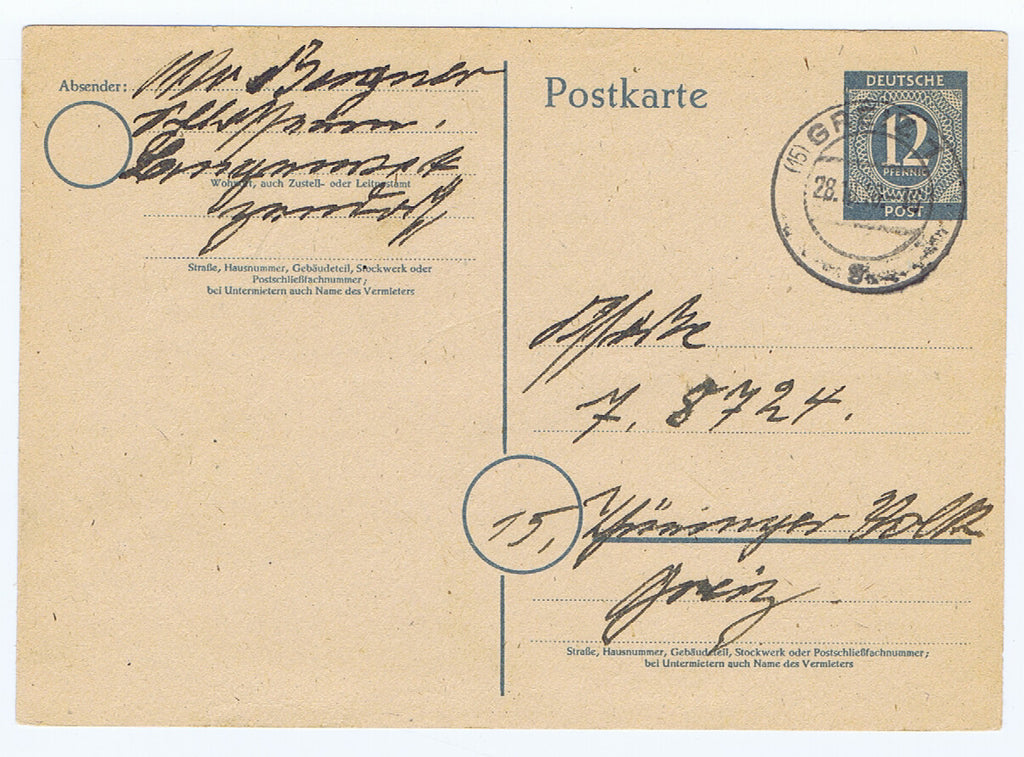 Absender:
Bergner
Wohnort, auch Zustell- oder Leitpostamt
Straße, Hausnummer, Gebäudeteil, Stockwerk oder
Postschließfachnummer;
bei Untermietern auch Name des Vermieters
Postkarte
DEUTSCHE
12
PFENNIG
POST
(15) GREIZ
28.
7. 8724.
15, Thüringer Volk
Greiz.
Straße, Hausnummer, Gebäudeteil, Stockwerk oder Postschließfachnummer;
bei Untermietern auch Name des Vermieters